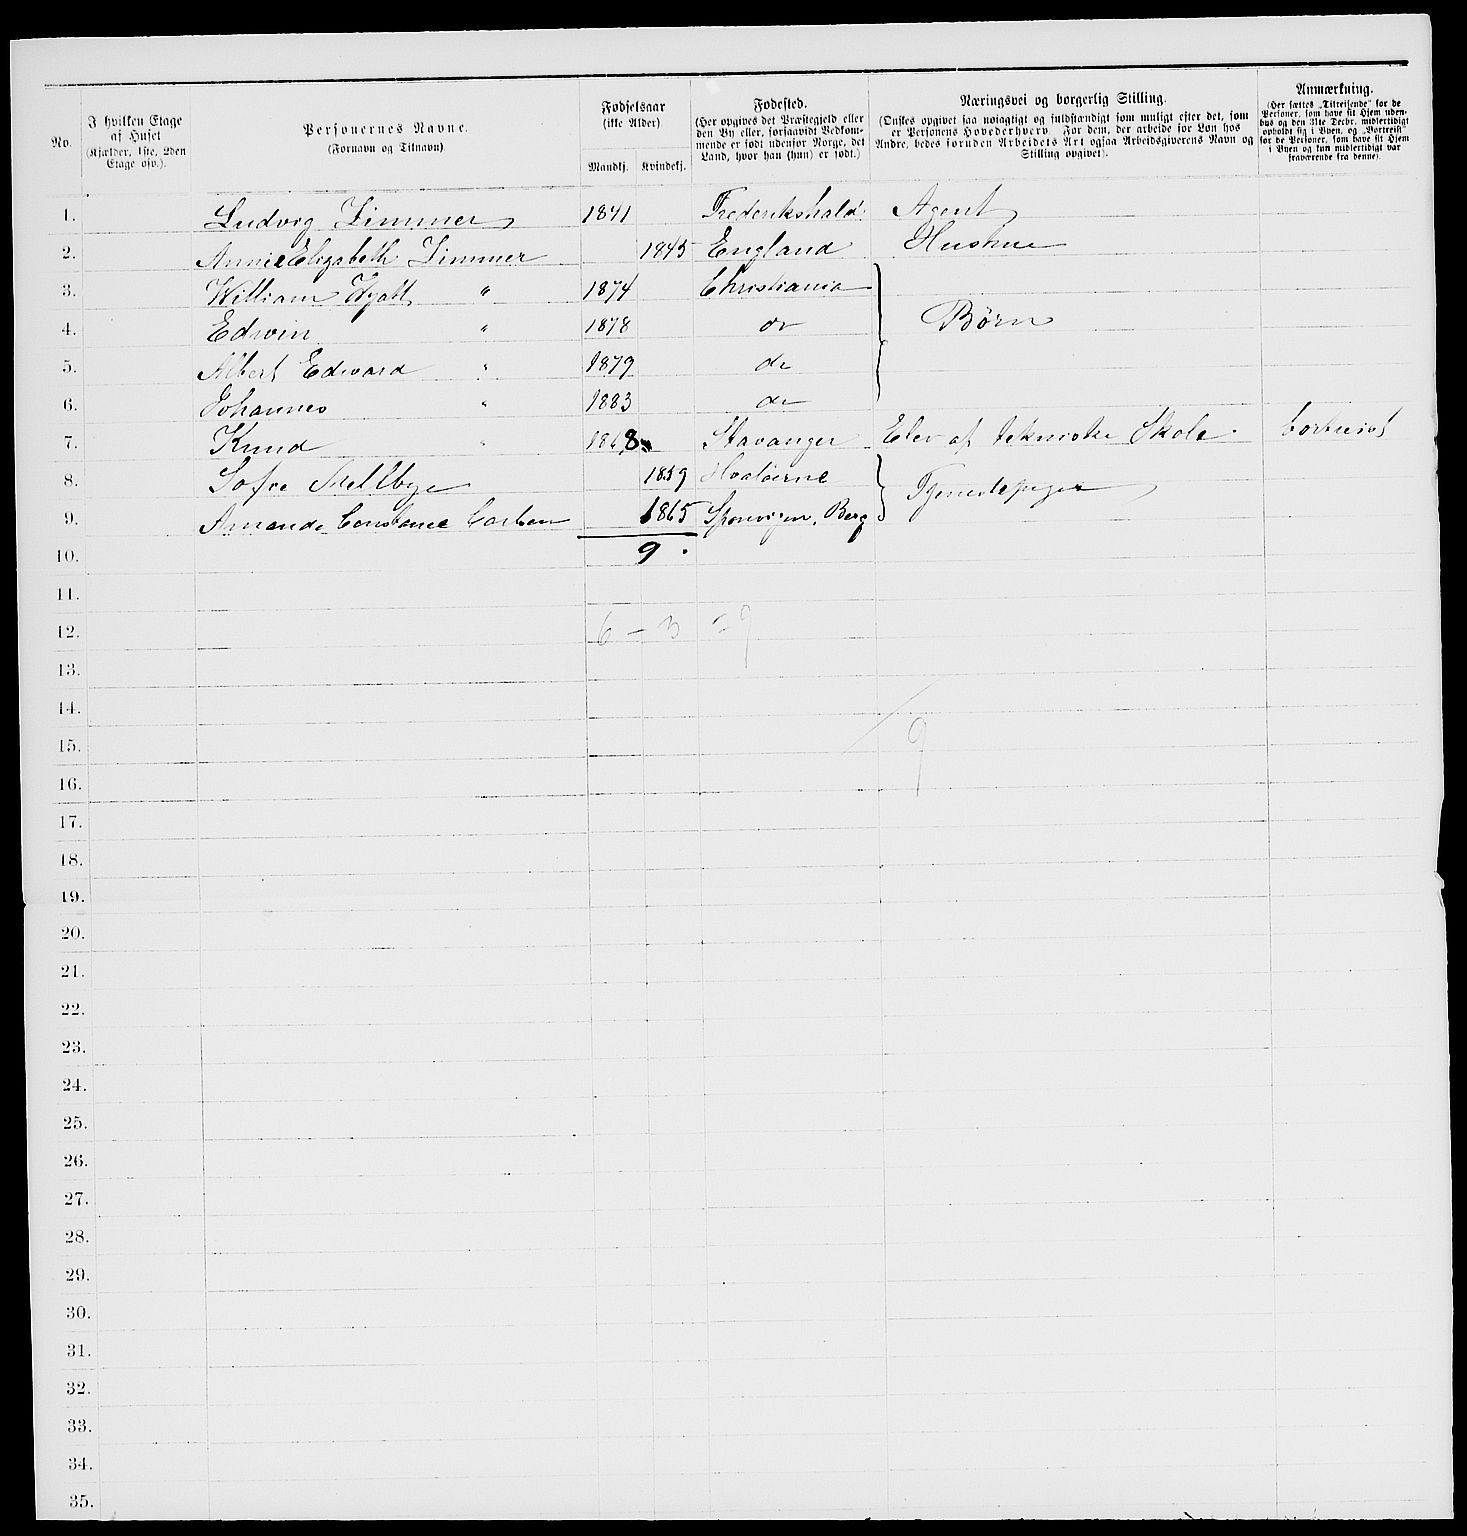 No.
I hvilken Etage af Huset (Kjælder, 1ste, 2den Etage osv.).
Personernes Navne. (Fornavn og Tilnavn)
Fødselsaar (ikke Alder)
Mandkj. Kvindekj.
Fødested. (Her opgives det Præstegjeld eller den By eller, forsaavidt Vedkommende er født udenfor Norge, det Land, hvor han (hun) er født.)
Næringsvei og borgerlig Stilling. (Ønskes opgivet saa nøiagtigt og fuldstændigt som muligt efter det, som er Personens Hovederhverv. For dem, der arbeide for Løn hos Andre, bedes foruden Arbeidets Art ogsaa Arbeidsgiverens Navn og Stilling opgivet).
Anmærkning. (Her sættes „Tilreisende“ for de Personer, som have sit Hjem udenbys og den 31te Decbr. midlertidigt opholdt sig i Byen, og „Bortreist“ for de Personer, som have sit Hjem i Byen og kun midlertidigt var fraværende fra denne).
1. Ludvig Zimmer 1841 Frederikshald Agent
2. Annie Elizabeth Zimmer 1845 England Hustrue
3. William Wyatt " 1874 Christiania
4. Edwin " 1878 do Børn
5. Albert Edward " 1879 do
6. Johannes " 1883 do
7. Knud " 1868 Stavanger Elev af tekniske Skole bortreist
8. Sofie Mellbye 1859 Hvaløerne Tjenestepiger
9. Amanda Constance Carlsen 1865 Sponvigen, Berg
10. 9.
11.
12. 6 – 3 = 9
13.
14.
15. 9
16.
17.
18.
19.
20.
21.
22.
23.
24.
25.
26.
27.
28.
29.
30.
31.
32.
33.
34.
35.